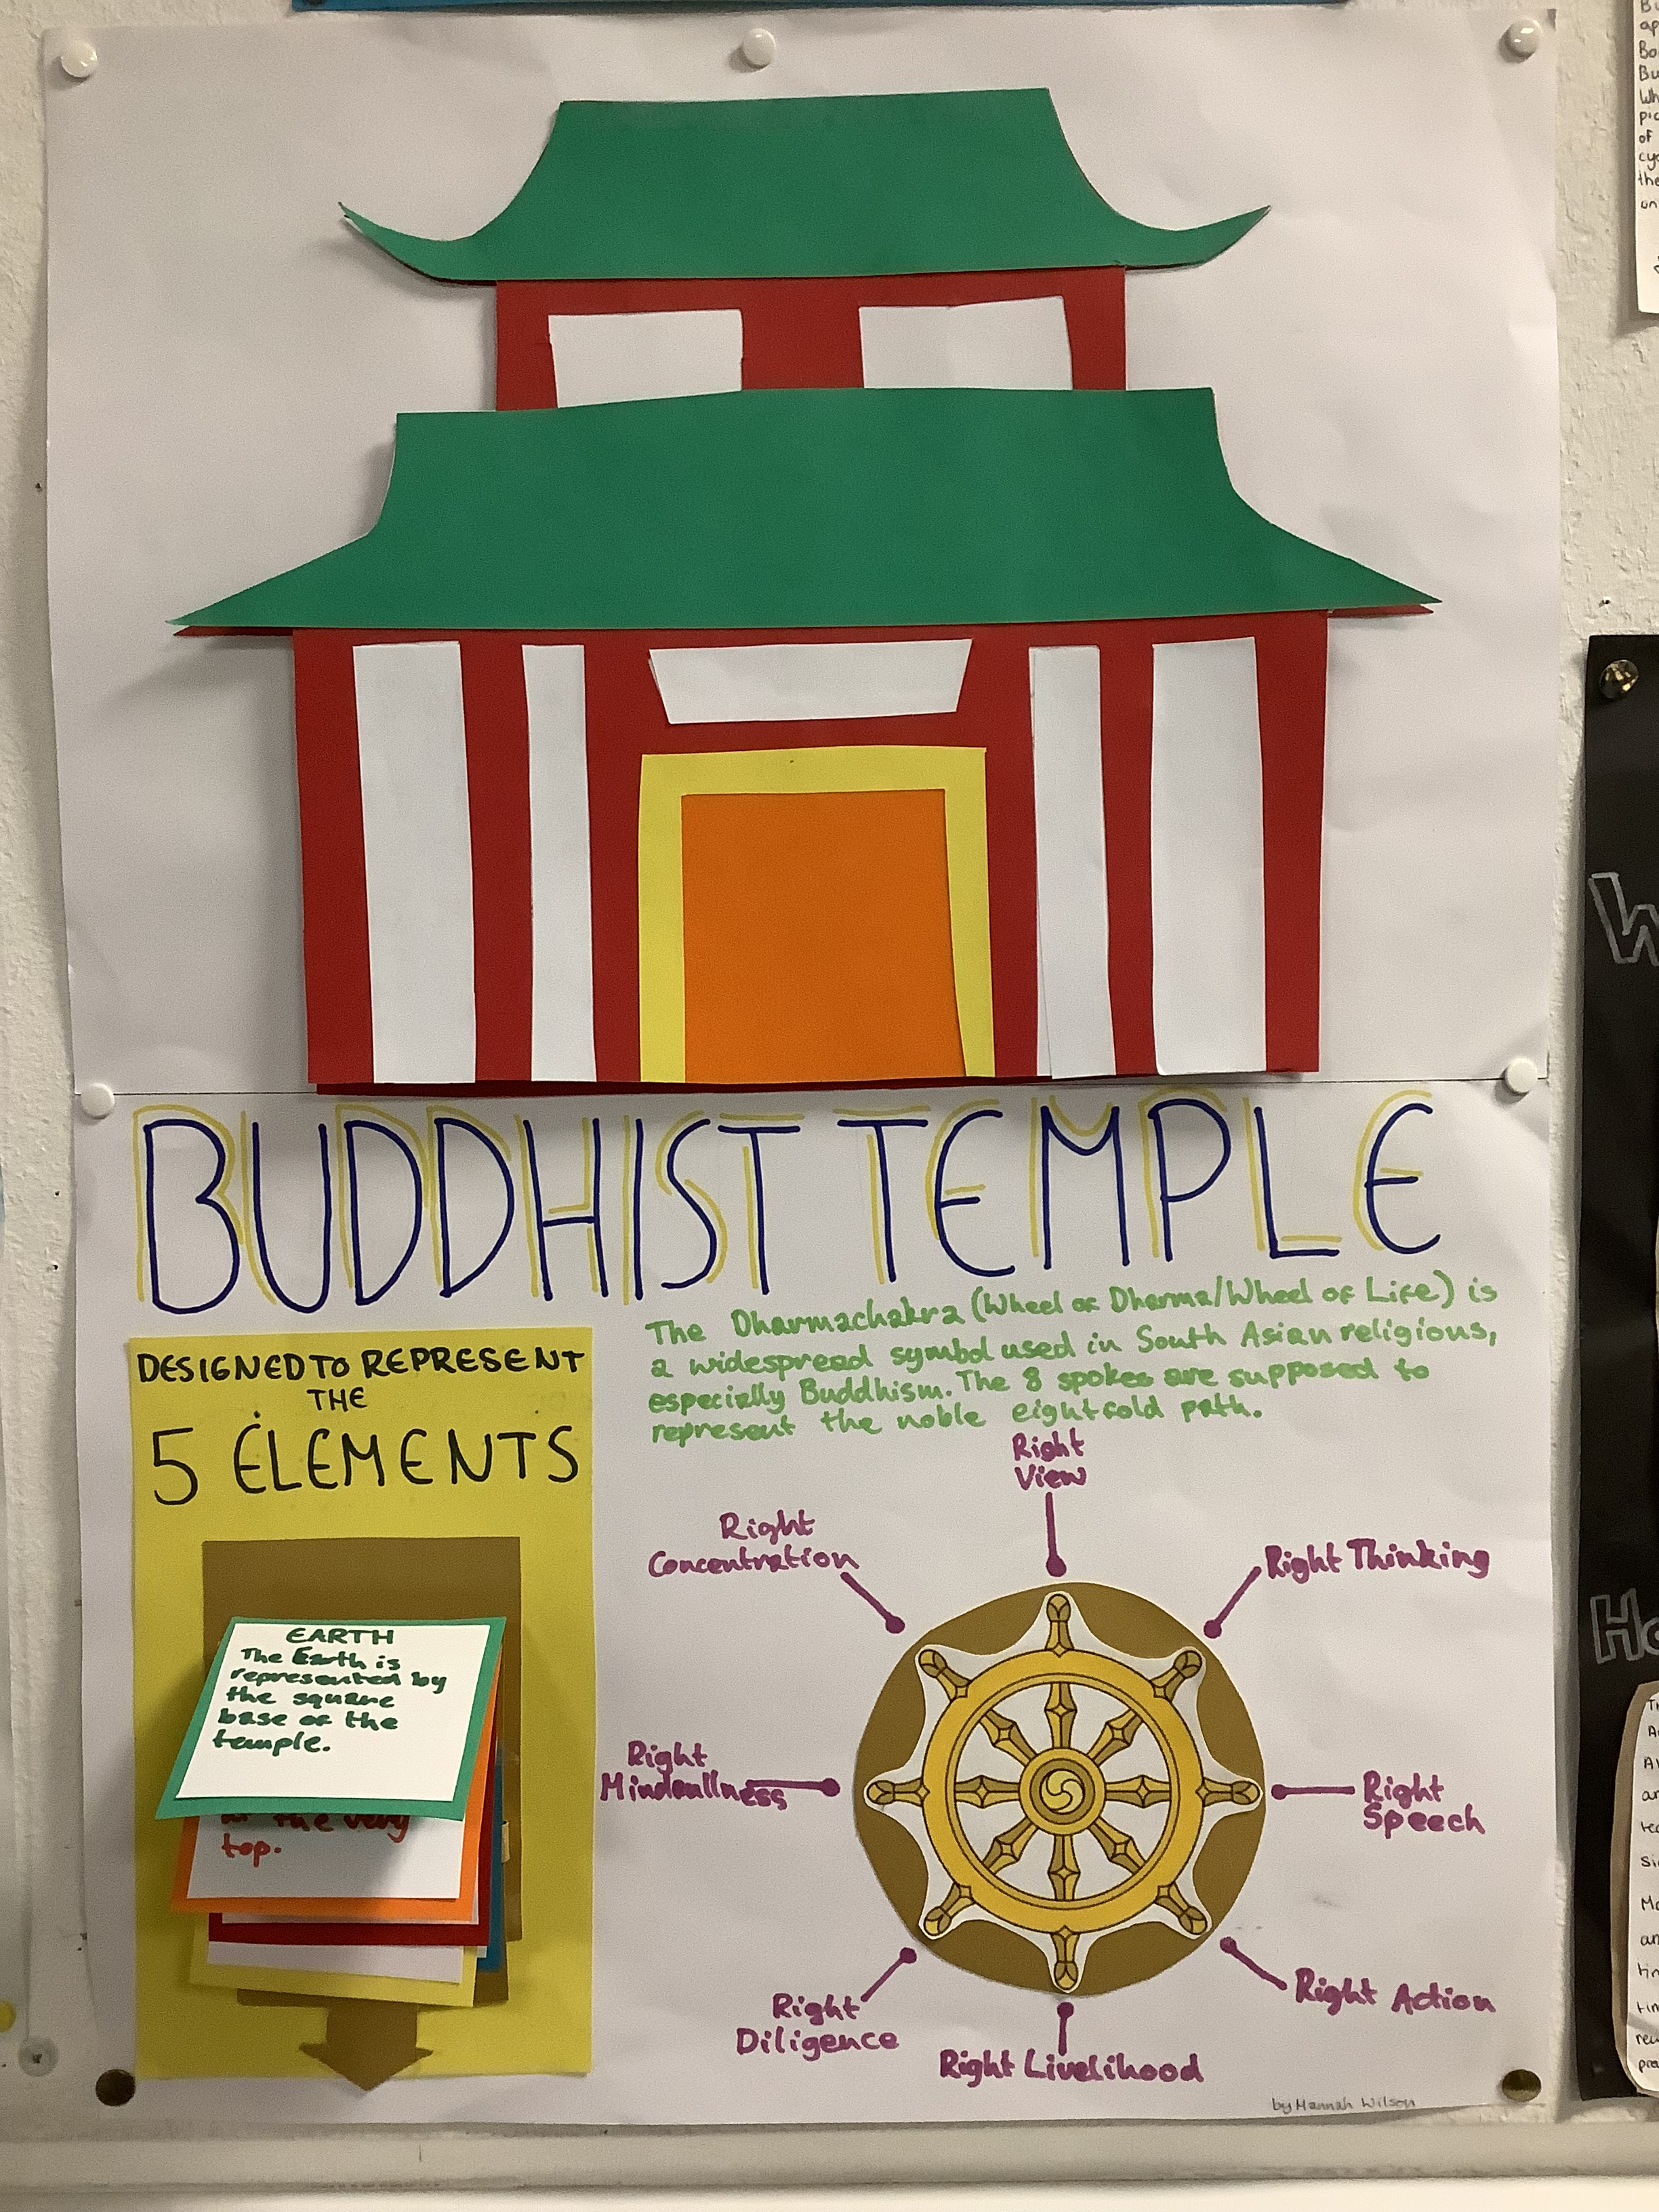 BUDDHIST TEMPLE
DESIGNED TO REPRESENT
THE
5 ELEMENTS
EARTH
The Earth is
represented by
the square
base of the
temple.
the very
top.
The Dharmachakra (Wheel of Dharma/Wheel of Life) is
a widespread symbol used in South Asian religious,
especially Buddhism. The 8 spokes are supposed to
represent the noble eightfold path.
Right
View
Right
Concentration
Right Thinking
Right
Mindfullness
Right
Speech
Right
Diligence
Right Action
Right Livelihood
by Hannah Wilson